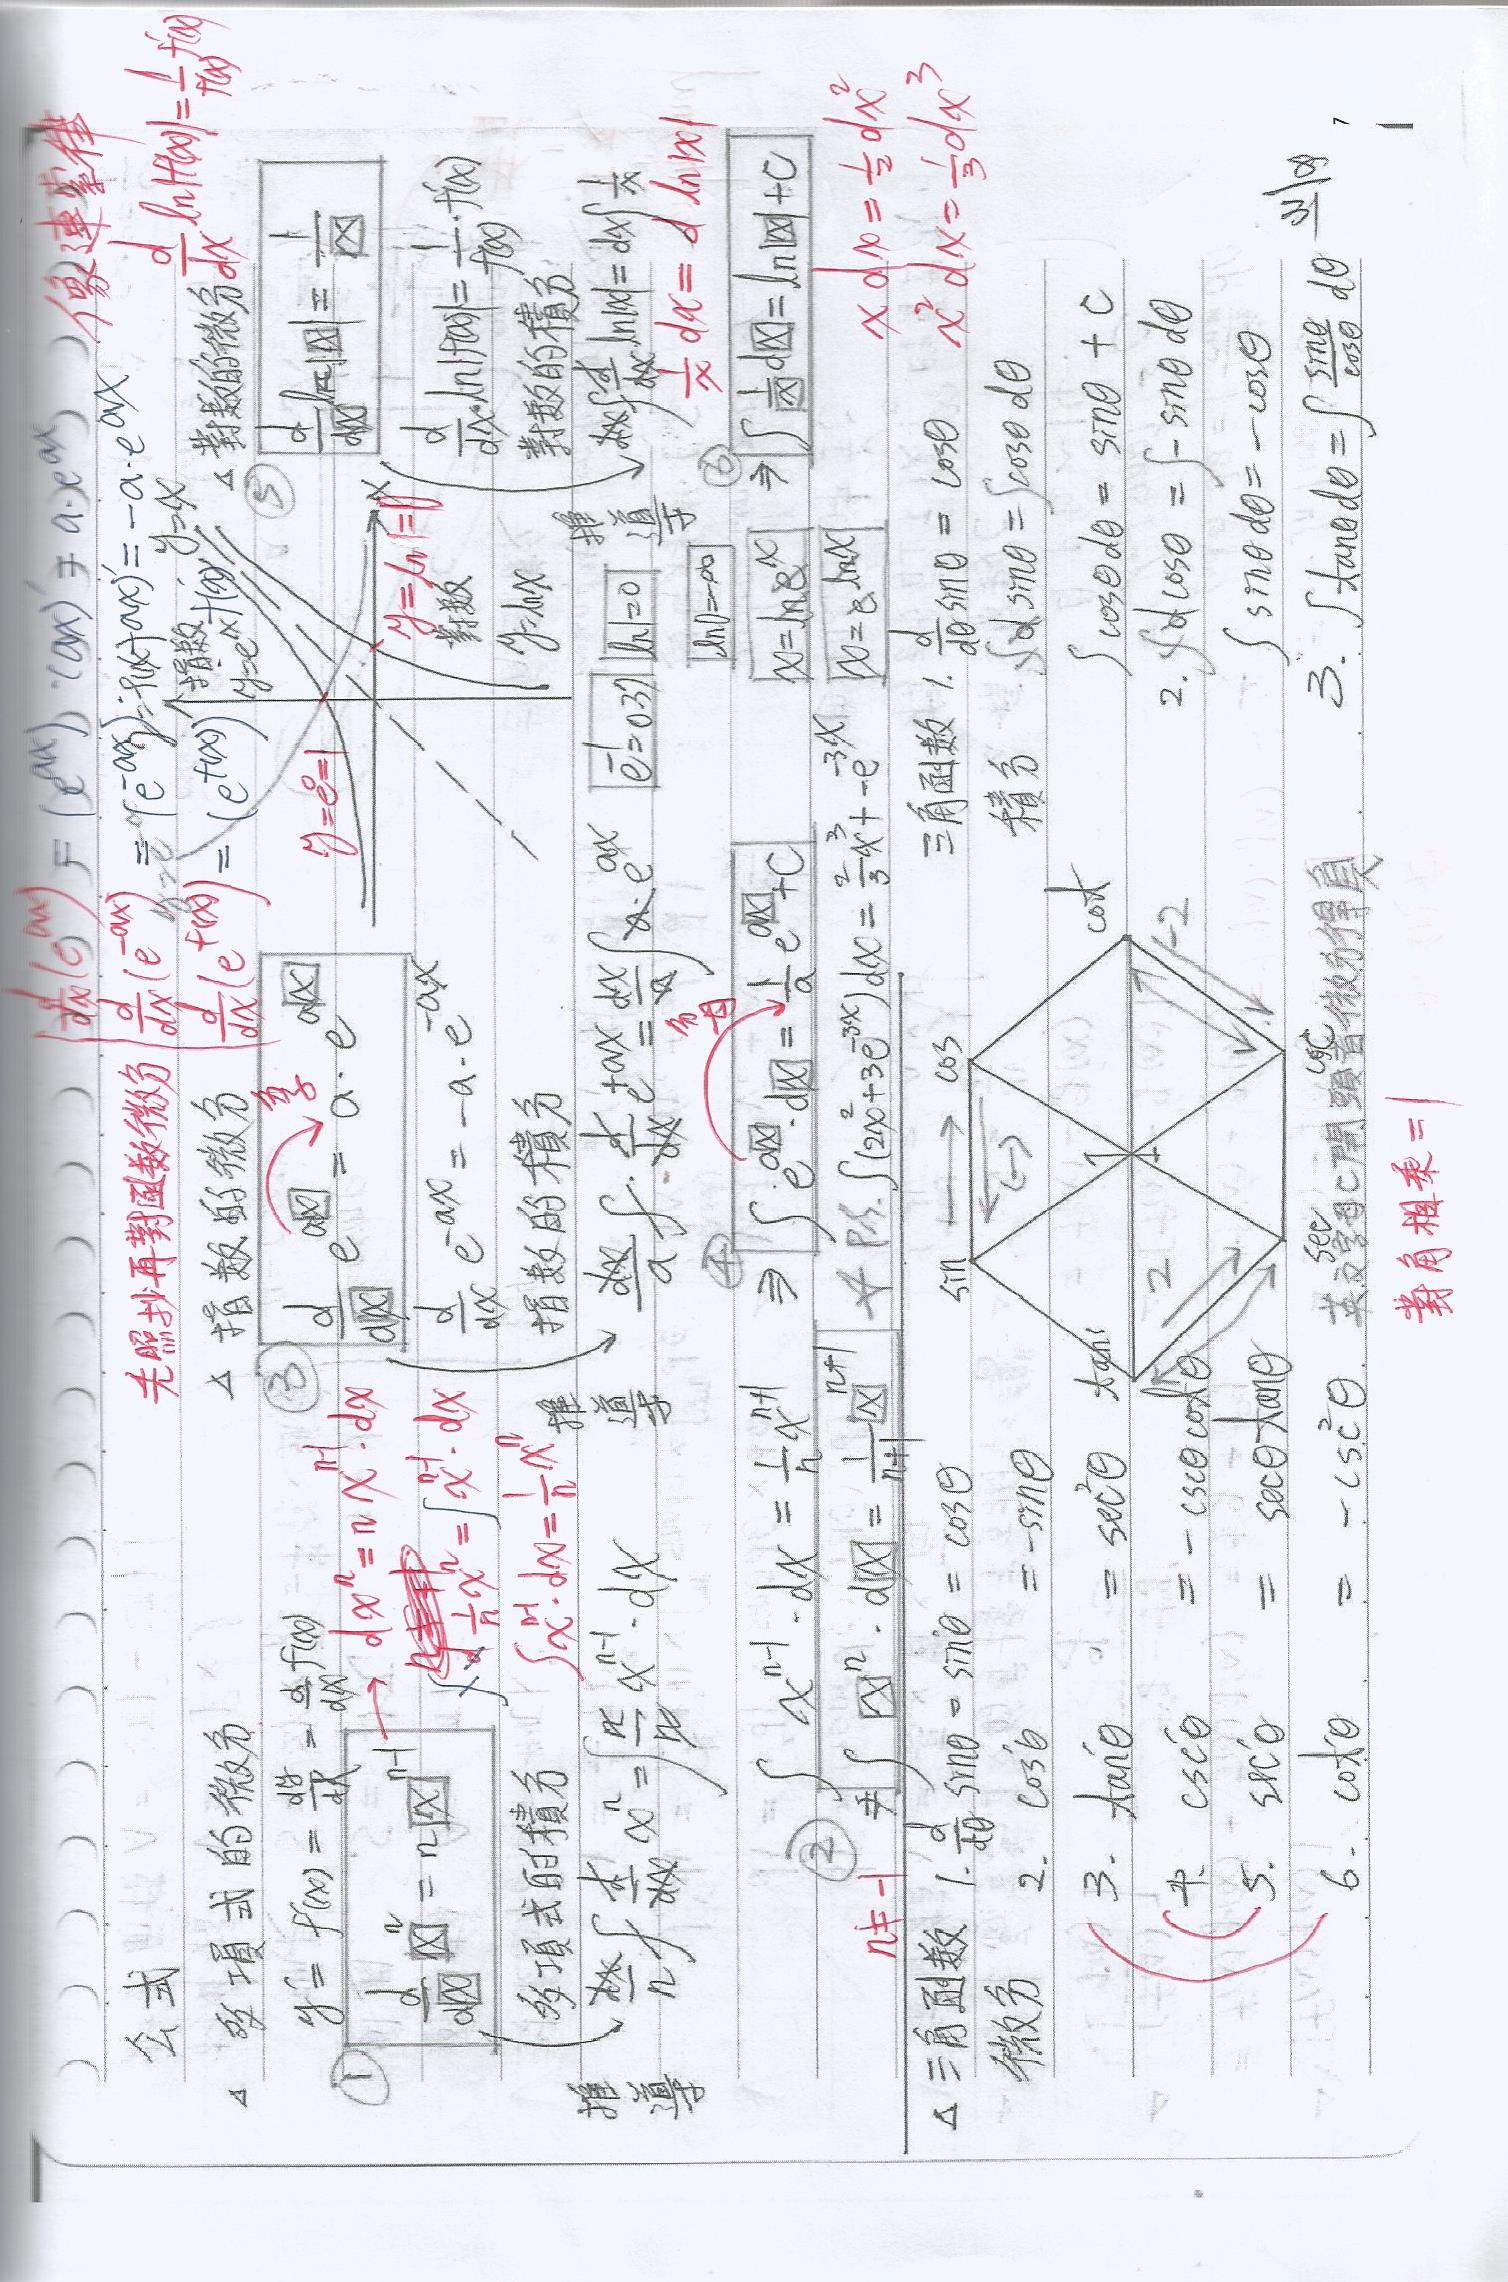 公式
△ 多項式的微分
y' = f'(x) = dy/dx = d/dx f(x)
① d/dx x^n = n x^(n-1)
→ dx^n = n x^(n-1)·dx
∫d 1/n x^n = ∫x^(n-1)·dx
∫x^(n-1)·dx = 1/n x^n
多項式的積分
推導
dx/n ∫ d/dx x^n = ∫ n/n x^(n-1)·dx
∫ x^(n-1)·dx = 1/n x^(n-1+1)
② ≠ ∫ x^n·dx = 1/(n+1) x^(n+1)
n≠-1
先照抄再對函數微分
d/dx(e^(ax)) = (e^(ax))·(ax)' = a·e^(ax)
d/dx(e^(-ax)) = (e^(-ax))·(-ax)' = -a·e^(-ax)
d/dx(e^(f(x))) = (e^(f(x)))' f'(x)
像連鎖律
△ 指數的微分
③ d/dx e^(ax) = a·e^(ax)
d/dx e^(-ax) = -a·e^(-ax)
指數的積分
推導
dx/a ∫· d/dx e^(+ax) = dx/a ∫ a·e^(ax)
④ ⇒ ∫ e^(ax)·dx = 1/a e^(ax) + C
分母
P.S. ∫(2x²+3e^(-3x))dx = 2/3 x³ + -e^(-3x)
指數
y=e^x
y=x
y=e^0=1
y=ln1=0
x
對數
y=lnx
e^-1=0.37
ln1=0
ln0=-∞
x=lne^x
x=e^lnx
△ 對數的微分
d/dx ln|f(x)| = 1/f(x) f'(x)
⑤ d/dx ln|x| = 1/x
d/dx·ln|f(x)| = 1/f(x)·f'(x)
對數的積分
推導
dx∫ d/dx·ln|x| = dx∫ 1/x
1/x dx = d ln|x|
⑥ ⇒ ∫ 1/x dx = ln|x| + C
x dx = 1/2 dx²
x² dx = 1/3 dx³
△ 三角函數
微分
1. d/dθ sinθ = sin'θ = cosθ
2. cos'θ = -sinθ
3. tan'θ = sec²θ
4. csc'θ = -cscθ cotθ
5. sec'θ = secθ tanθ
6. cot'θ = -csc²θ
sin
cos
(-)
tan
cot
1
2
-2
sec
csc
英文字母C開頭者微分得負
對角相乘=1
三角函數
積分
1. d/dθ sinθ = cosθ
∫d sinθ = ∫cosθ dθ
∫cosθ dθ = sinθ + C
2. ∫d cosθ = ∫-sinθ dθ
∫sinθ dθ = -cosθ
3. ∫tanθ dθ = ∫ sinθ/cosθ dθ
7